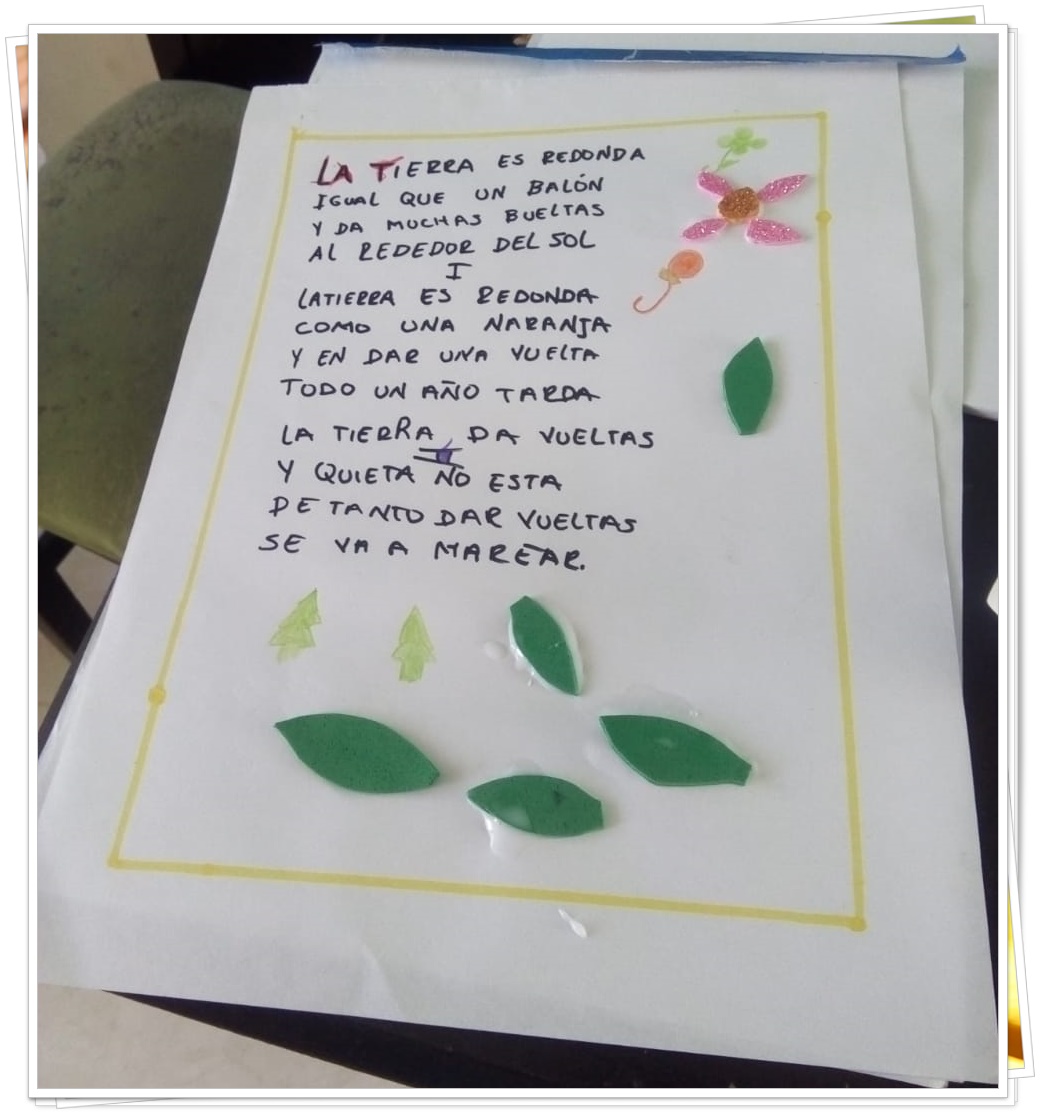 LA TIERRA ES REDONDA
IGUAL QUE UN BALÓN
Y DA MUCHAS BUELTAS
AL REDEDOR DEL SOL
I
LATIERRA ES REDONDA
COMO UNA NARANJA
Y EN DAR UNA VUELTA
TODO UN AÑO TARDA
LA TIERRA DA VUELTAS
II
Y QUIETA NO ESTA
DE TANTO DAR VUELTAS
SE VA A MAREAR.